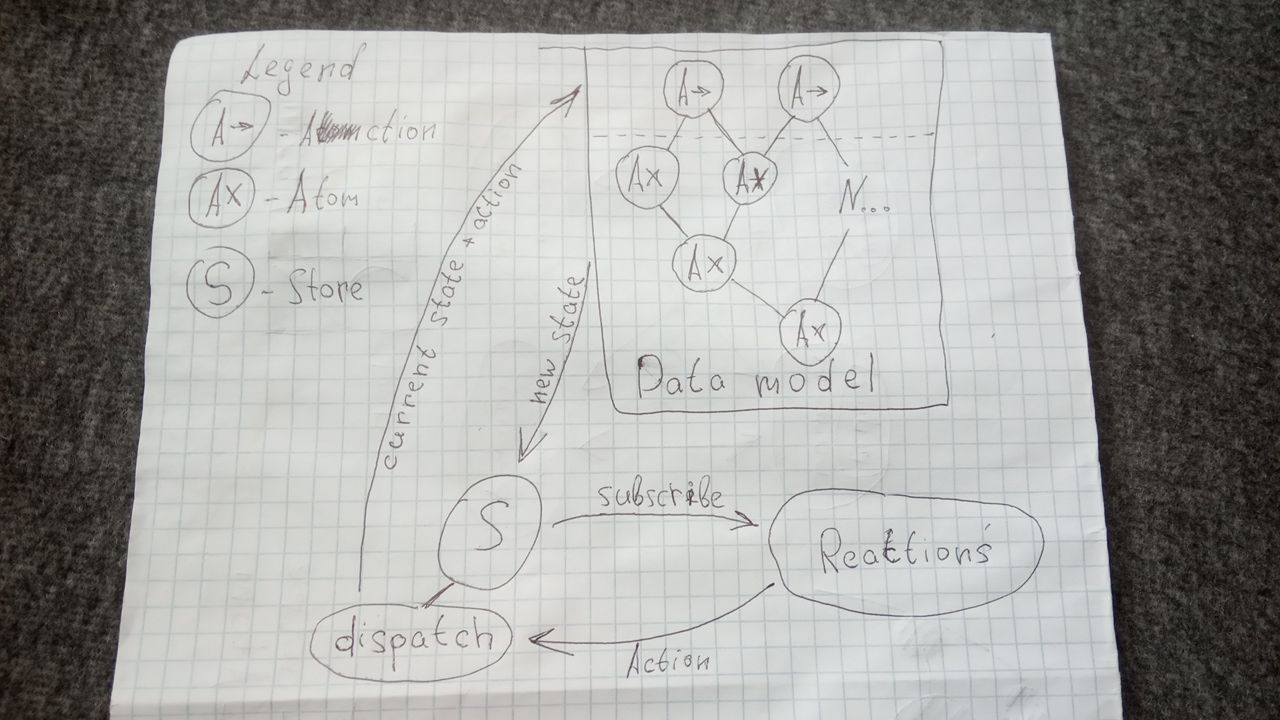 Legend
A→ - Action
Ax - Atom
S - Store
A→ A→
Ax Ax N...
Ax
Ax
Data model
current state + action
new state
S
subscribe
Reactions
dispatch
Action